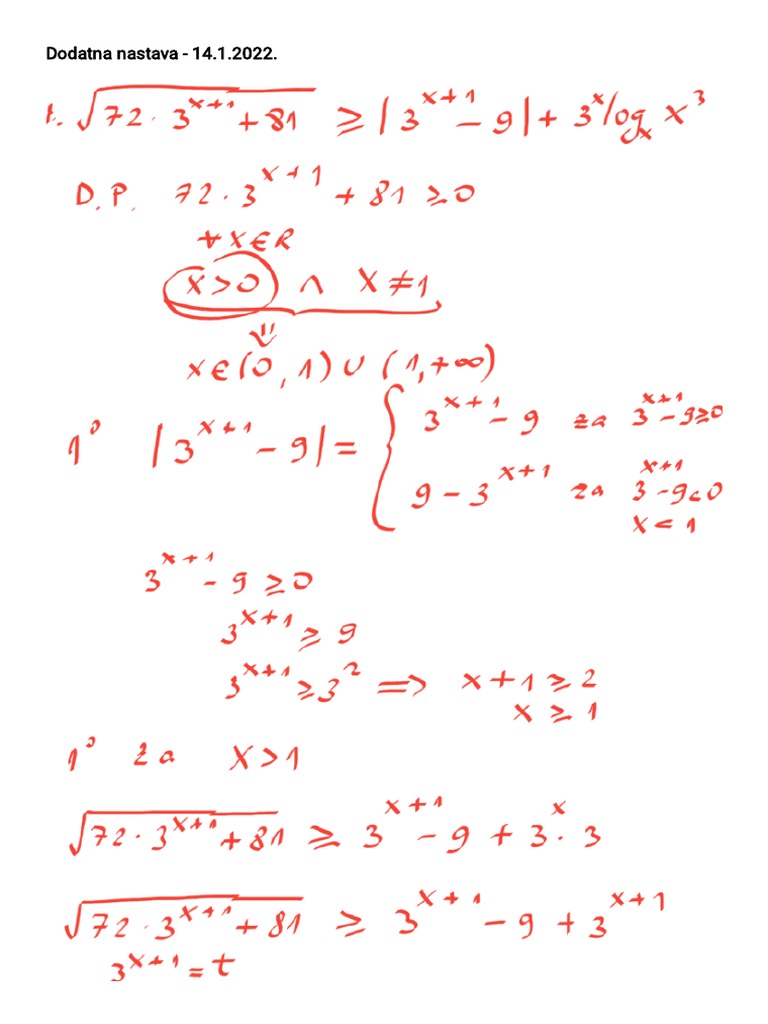 Dodatna nastava - 14.1.2022.
1. √(72 · 3^(x+1) + 81) ≥ |3^(x+1) - 9| + 3^x log_x x^3
D.P. 72 · 3^(x+1) + 81 ≥ 0
∀ x ∈ R
x > 0 ∧ x ≠ 1
⇓
x ∈ (0, 1) ∪ (1, +∞)
1° |3^(x+1) - 9| = { 3^(x+1) - 9 za 3^(x+1) - 9 ≥ 0
9 - 3^(x+1) za 3^(x+1) - 9 < 0
x < 1
3^(x+1) - 9 ≥ 0
3^(x+1) ≥ 9
3^(x+1) ≥ 3^2 ⇒ x + 1 ≥ 2
x ≥ 1
1° za x > 1
√(72 · 3^(x+1) + 81) ≥ 3^(x+1) - 9 + 3^x · 3
√(72 · 3^(x+1) + 81) ≥ 3^(x+1) - 9 + 3^(x+1)
3^(x+1) = t